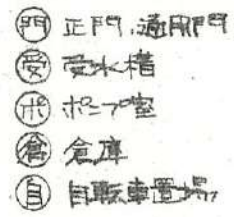 ㊀門 正門、通用門
受 受水槽
ポ ポンプ室
倉 倉庫
自 自転車置場